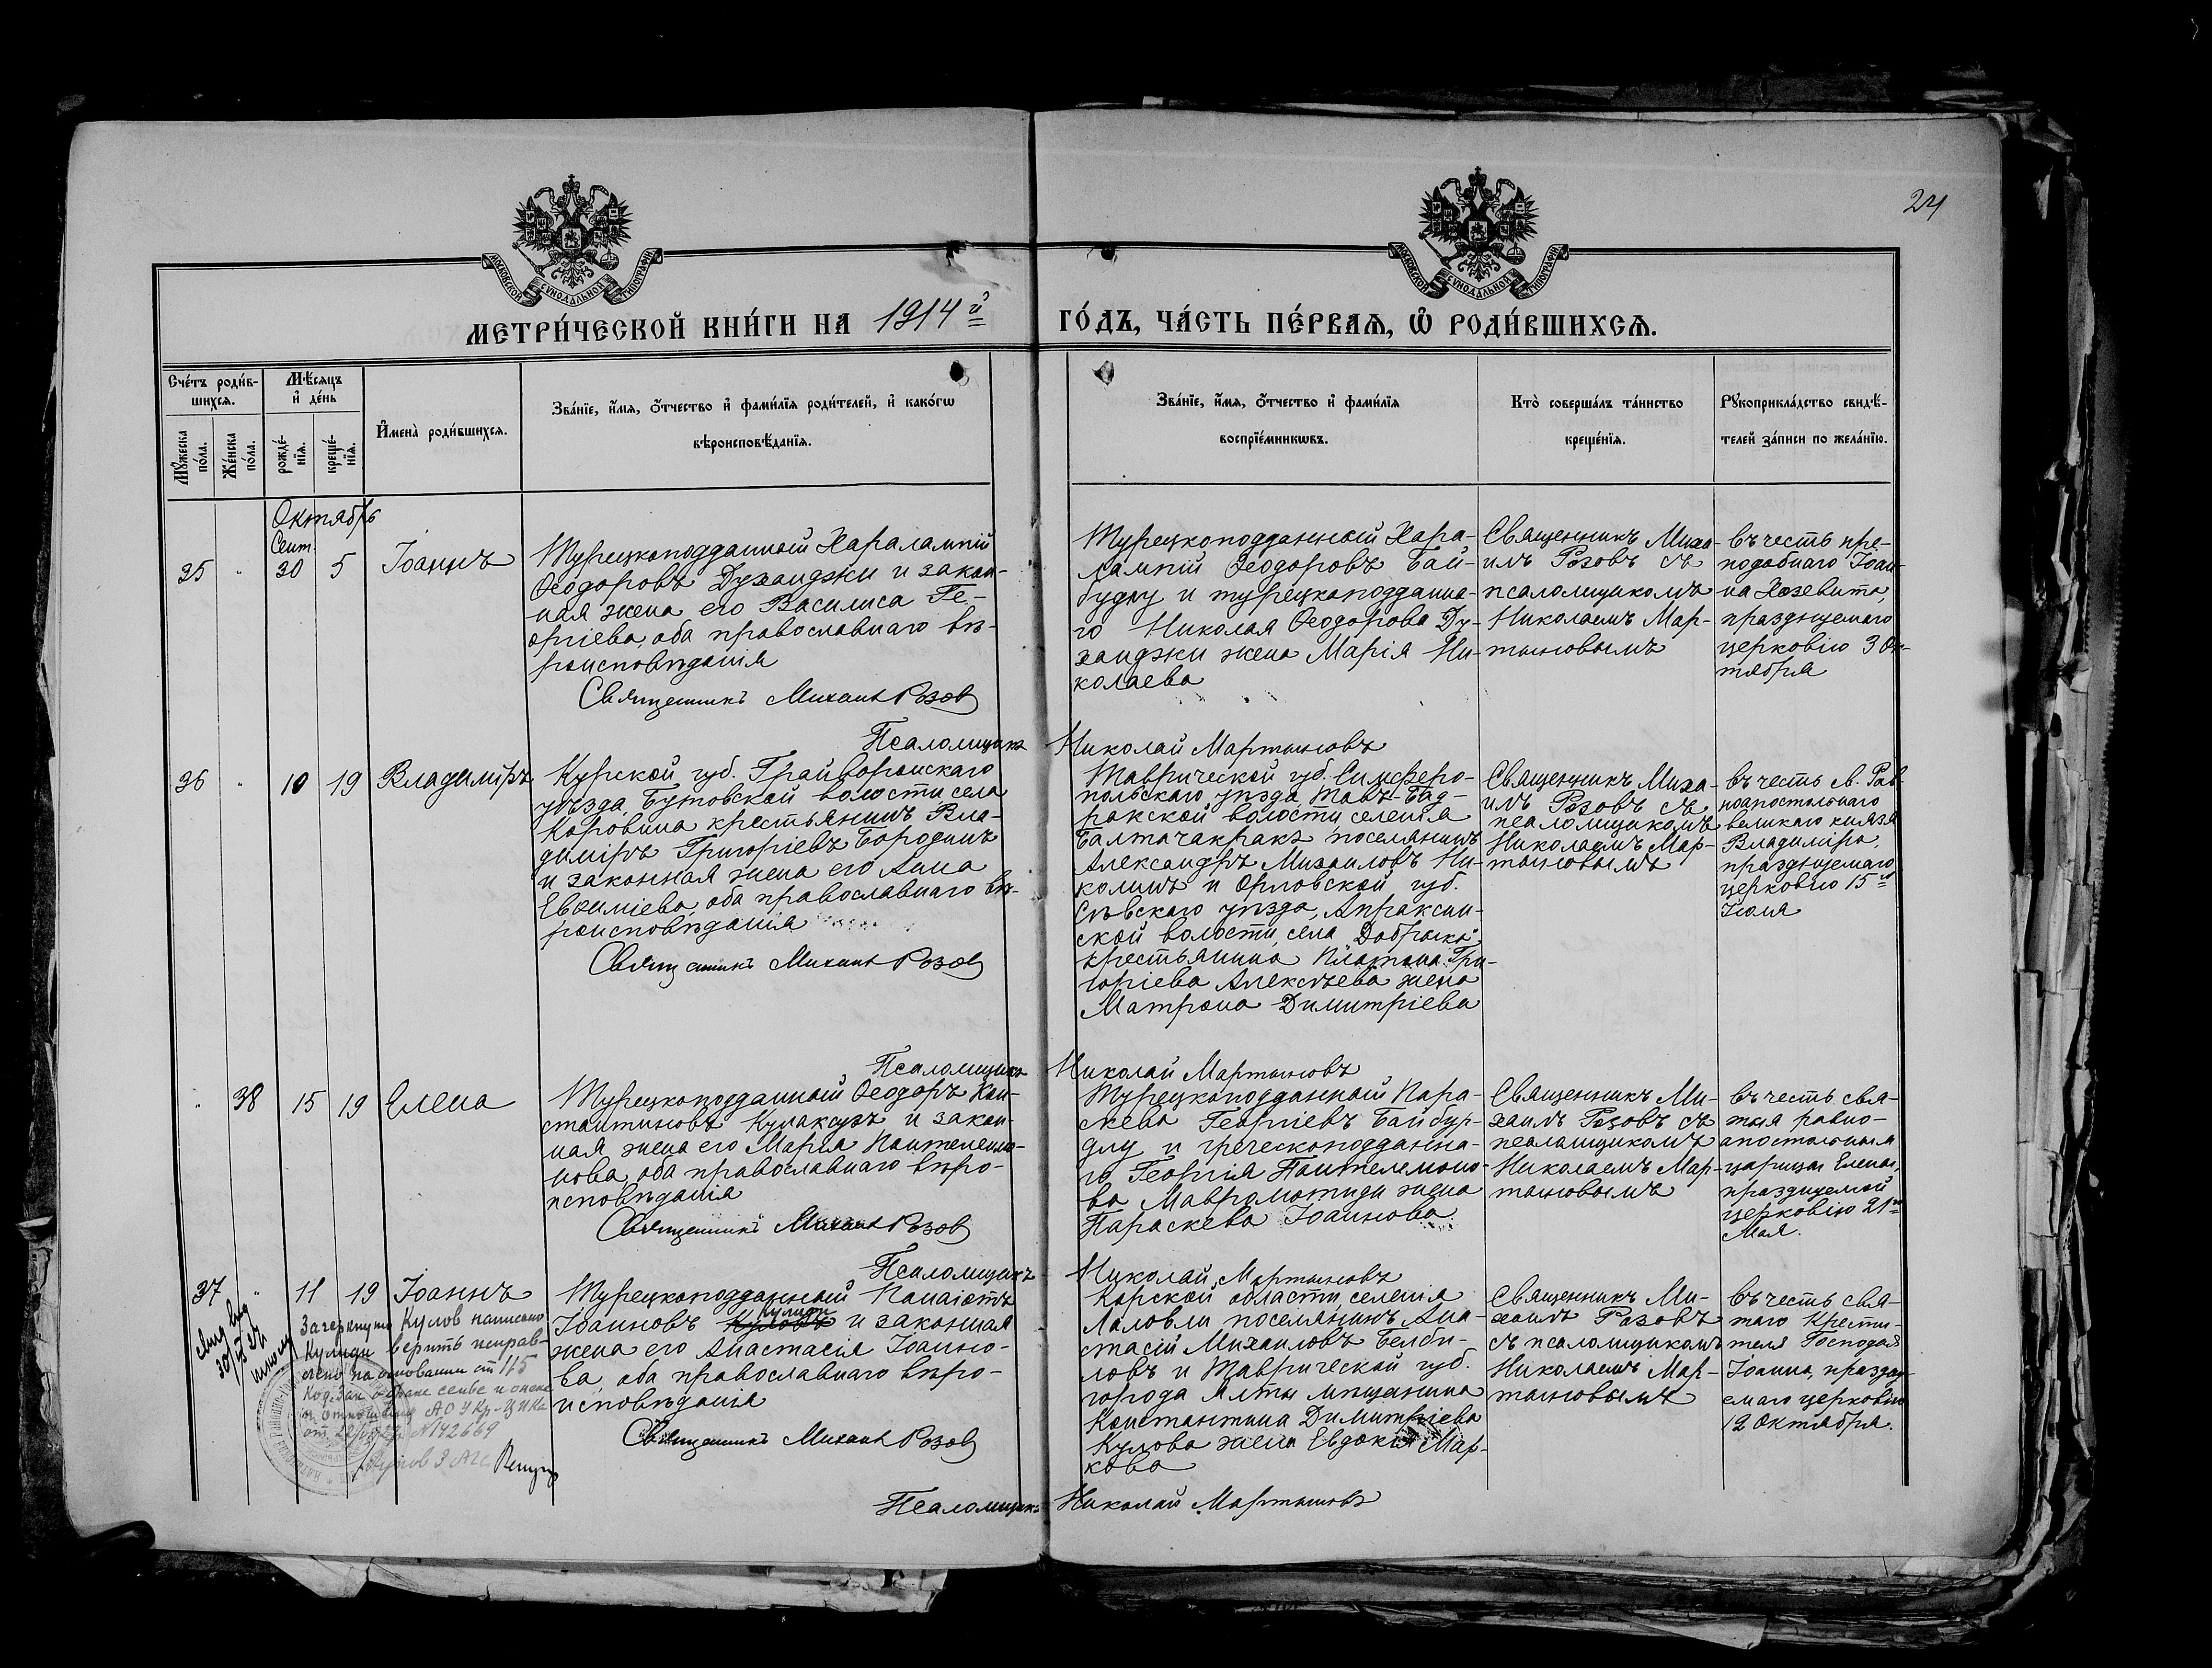 24
МОСКОВСКОЙ СУНОДАЛЬНОЙ ТИПОГРАФІИ
МОСКОВСКОЙ СУНОДАЛЬНОЙ ТИПОГРАФІИ
МЕТРИ́ЧЕСКОЙ КНИ́ГИ НА 1914 й
ГО́ДЪ, ЧА́СТЬ ПЕ́РВАѦ, Ѡ҆ РОДИ́ВШИХСѦ.
Сче́тъ роди́в-
шихсѧ.
Мꙋ́жеска по́ла.
Же́нска по́ла.
Мѣ́сѧцъ
и҆ де́нь
рожде́-
нїѧ.
креще́-
нїѧ.
И҆мена̀ роди́вшихсѧ.
Зва́нїе, и҆́мѧ, ѻ҆́тчество и҆ фами́лїѧ роди́телей, и҆ како́гѡ
вѣроисповѣ́данїѧ.
Зва́нїе, и҆́мѧ, ѻ҆́тчество и҆ фами́лїѧ
воспрїе́мникѡвъ.
Кто̀ соверша́лъ та́инство
креще́нїѧ.
Рꙋкоприкла́дство свидѣ́-
телей за́писи по жела́нїю.
Октябрь
35 " Сент. 30 5 Іоаннъ
Турецкоподданный Харалампій
Ѳеодоровъ Духанджи и закон-
ная жена его Василиса Ге-
оргіева, оба православнаго вѣ-
роисповѣданія
Священникъ Михаилъ Розов
Турецкоподданный Хара-
лампій Ѳеодоровъ Бай-
бурлу и турецкоподданна-
го Николая Ѳеодорова Ду-
ханджи жена Марія Ни-
колаева
Священникъ Миха-
илъ Розовъ съ
псаломщикомъ
Николаемъ Мар-
тыновымъ
въ честь пре-
подобнаго Іоан-
на Хозевита,
празднуемаго
церковію 3 Ок-
тября
Псаломщикъ Николай Мартыновъ
36 " 10 19 Владиміръ
Курской губ. Грайворонскаго
уѣзда, Бутовской волости села
Коровина крестьянинъ Вла-
диміръ Григоріевъ Бородинъ
и законная жена его Анна
Евѳиміева, оба православнаго вѣ-
роисповѣданія
Священникъ Михаилъ Розов
Таврической губ. Симферо-
польскаго уѣзда,
ракской волости селенія
Балтачакракъ поселянинъ
Александръ Михаиловъ Ни-
колинъ и Орловской губ.
Сѣвскаго уѣзда, Апраксин-
ской волости, села
крестьянина Платона Гри-
горіева Алексѣева жена
Матрона Димитріева
Священникъ Миха-
илъ Розовъ съ
псаломщикомъ
Николаемъ Мар-
тыновымъ
въ честь св. Рав-
ноапостольнаго
великаго князя
Владиміра,
празднуемаго
церковію 15 го
Іюля
Псаломщикъ Николай Мартыновъ
" 38 15 19 Елена
Турецкоподданный Ѳеодоръ Кон-
стантиновъ Кулаксузъ и закон-
ная жена его Марія Пантелеимо-
нова, оба православнаго вѣро-
исповѣданія
Священникъ Михаилъ Розов
Турецкоподданный Пара-
скева Георгіевъ Байбур-
длу и греческоподданна-
го Георгія Пантелемоно-
ва Мавроматиди жена
Параскева Іоаннова
Священникъ Ми-
хаилъ Розовъ съ
псаломщикомъ
Николаемъ Мар-
тыновымъ
въ честь свя-
тыя равно-
апостольныя
царицы Елены,
празднуемой
церковію 21 го
Мая.
Псаломщикъ Николай Мартыновъ
37 " 11 19 Іоаннъ
Турецкоподданный Панаіотъ
Кулиди
Іоанновъ Куловъ и законная
жена его Анастасія Іоанно-
ва, оба православнаго вѣро-
исповѣданія
Священникъ Михаилъ Розов
Карской области, селенія
поселянинъ Ана-
стасій Михаиловъ Белби-
ловъ и Таврической губ.
города Ялты мѣщанина
Константина Димитріева
Кулова жена Евдокія Мар-
кова
Священникъ Ми-
хаилъ Розовъ
съ псаломщикомъ
Николаемъ Мар-
тыновымъ
въ честь свя-
таго Крести-
теля Господня
Іоанна, праздну-
емаго церковію
12 Октября.
Зачеркнуто Кулов написано
Кулиди верить исправ-
лено на основании ст 115
Код. Зак о браке семье и опеке
от № 142669
Псаломщикъ Николай Мартыновъ